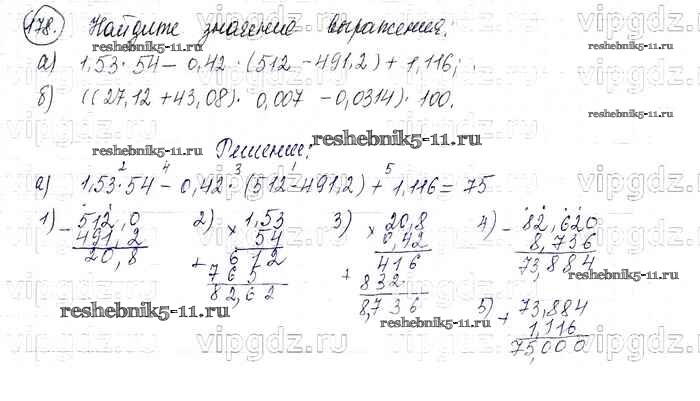 178. Найдите значение выражения:
а) 1,53 · 54 – 0,42 · (512 – 491,2) + 1,116;
б) ((27,12 + 43,08) · 0,007 – 0,0314) · 100.
Решение:
2 4 3 1 5
а) 1,53 · 54 – 0,42 · (512 – 491,2) + 1,116 = 75
1) – 512,0 2) × 1,53 3) × 20,8 4) – 82,620
491,2 54 0,42 8,736
20,8 + 612 416 73,884
765 + 832
82,62 8,736 5) + 73,884
1,116
75,000
vipgdz.ru
reshebnik5-11.ru